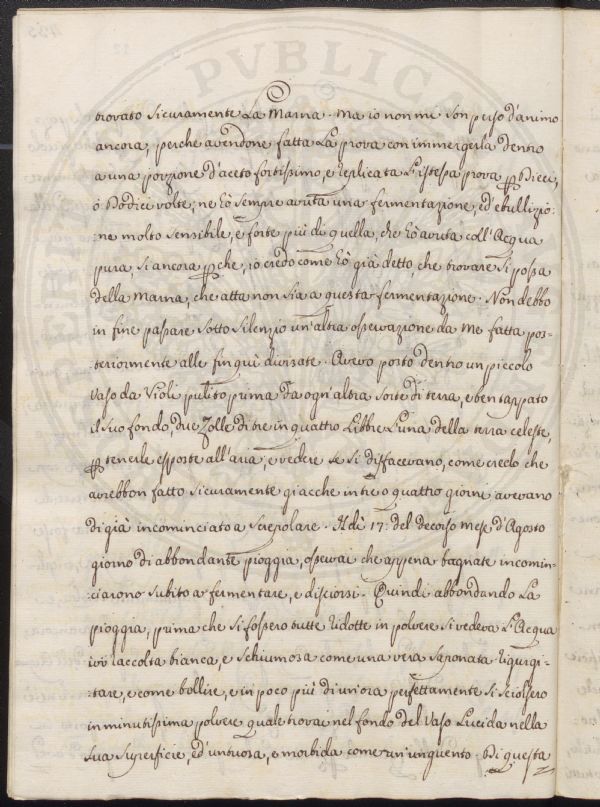 trovato sicuramente La Marna. Ma io non mi son perso d'animo
ancora, perche avendone fatta La prova con immergerla dentro
a una porzione d'aceto fortissimo, e replicata L'istessa prova p Dieci,
ò Dodici volte, ne hò sempre avuta una fermentazione, ed'ebullizio:
:ne molto sensibile, e forte più di quella, che hò avuta coll'Acqua
pura, si ancora pche, io credo come hò già detto, che trovare si possa
della Marna, che atta non sia a questa fermentazione. Non debbo
in fine passare sotto silenzio un'altra osservazione da me fatta pos=
:teriormente alle fin quì divisate. Avevo posto dentro un piccolo
Vaso da Violi pulito prima da ogn'altra sorte di terra, e ben tappato
il suo fondo, due Zolle di tre in quattro Libbre L'una della terra celeste,
p tenerle esposte all'aria, e vedere se si disfacevano, come credo che
avrebbon fatto sicuramente giacche in tre o quattro giorni avevano
di già incominciato a screpolare. Il dì 17: del decorso mese d'Agosto
giorno di abbondante pioggia, osservai che appena bagnate incomin:
:ciarono subito a fermentare, e disciorsi. Quindi abbondando La
pioggia, prima che si fossero tutte ridotte in polvere si vedeva L'Acqua
ivi raccolta bianca, e schiumosa come una vera saponata rigurgi:
:tare, e come bollire, e in poco più di un'ora perfettamente si sciolsero
in minutissima polvere quale trovai nel fondo del Vaso Lucida nella
sua superficie, ed'untuosa, e morbida come un'unguento. Di questa